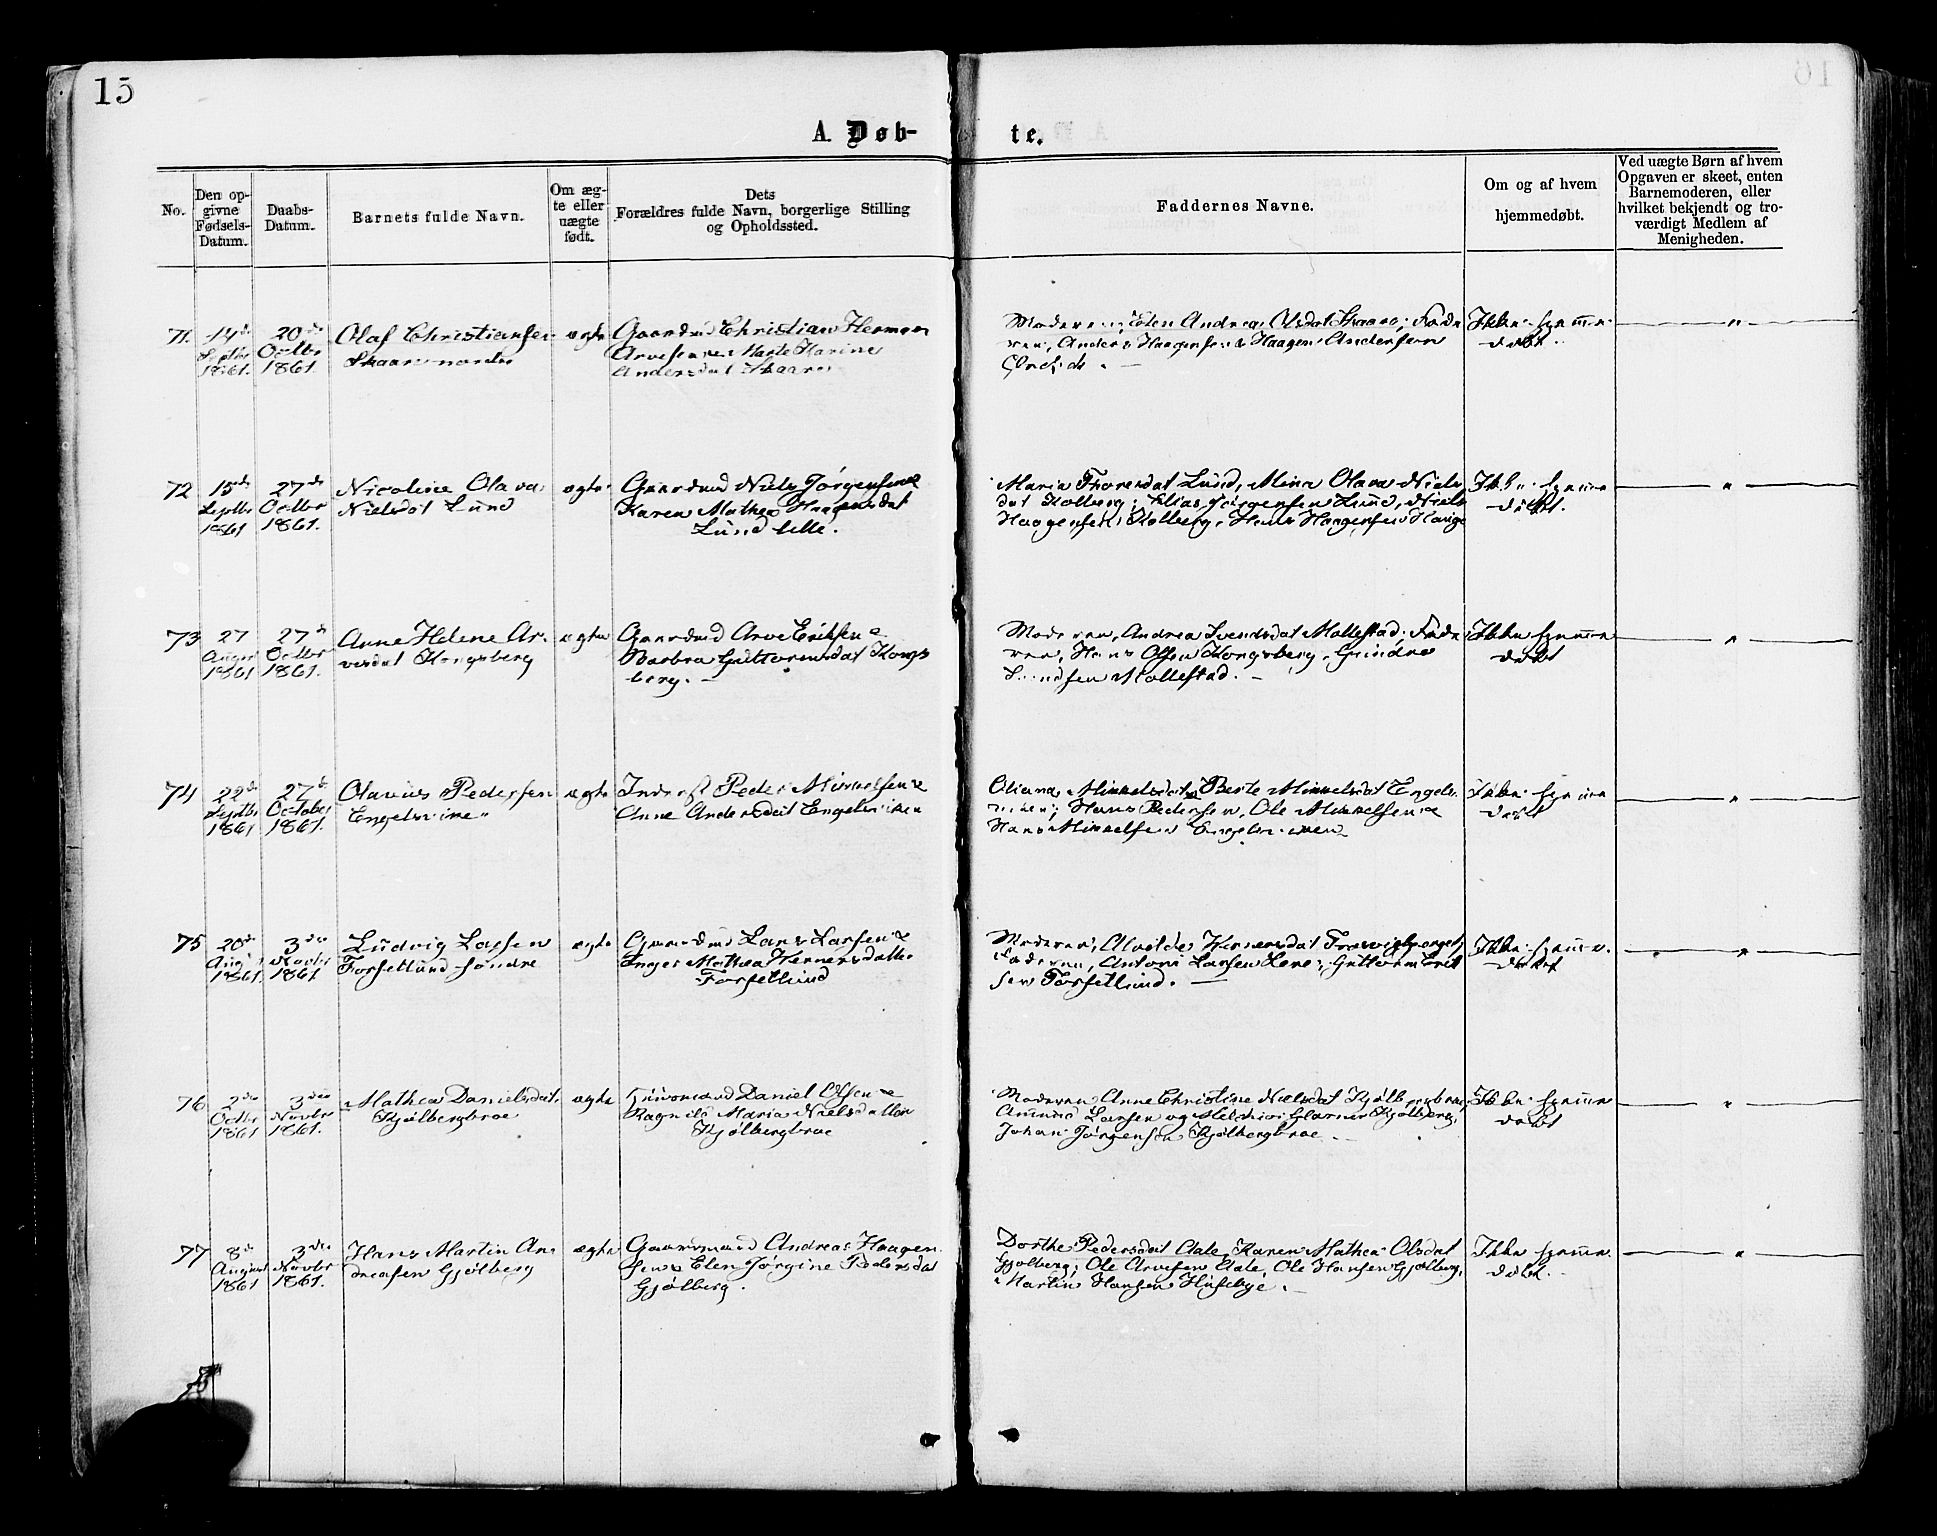 15
A. Døb-
te.
No.
Den op-
givne
Fødsels-
Datum.
Daabs-
Datum.
Barnets fulde Navn.
Om æg-
te eller
uægte
født.
Dets
Forældres fulde Navn, borgerlige Stilling
og Opholdssted.
Faddernes Navne.
Om og af hvem
hjemmedøbt.
Ved uægte Børn af hvem
Opgaven er skeet, enten
Barnemoderen, eller
hvilket bekjendt og tro-
værdigt Medlem af
Menigheden.
71.
14de
Septbr
1861.
20de
Octbr
1861.
Olaf Christiansen
Skaare nordre
ægte
Gaardmd Christian Herman
Arvesen & Marte Karine
Andersdat Skaare
Moderen, Elen Andrea Olsdat Skaare; Fade
ren, Anders Haagensen & Haagen Andersen
Ikke hjemme
døbt.
72
15de
Septbr
1861
27de
Octbr
1861.
Nicoline Olava
Nielsdat Lund
ægte
Gaardmd Niels Jørgensen &
Karen Mathea Haagensdat
Lund lille.
Maria Thoresdat Lund, Mina Olava Niels
dat Kolberg; Elias Jørgensen Lund, Niels
Haagensen Kolberg, Hans Haagensen Hauge
Ikke hjemme
døbt.
73
27
August
1861
27de
Octbr
1861.
Anne Helene Ar-
vesdat Kongsberg
ægte
Gaardmd Arve Eriksen &
Barbra Guttormsdat Kongs
berg.
Moderen, Andrea Svendsdat Mollestad; Fade
ren, Hans Olsen Kongsberg, Gundre
Svendsen Mollestad.
Ikke hjemme
døbt
74
22de
Septbr
1861
27de
October
1861.
Olavus Pedersen
ægte
Inderst Peder Mikkelsen &
Anne Andersdat
Oliana Mikkelsdat, Berte Mikkelsdat
Hans Pedersen, Ole Mikkelsen &
Hans Mikkelsen
Ikke hjemme
døbt
75
20de
August
1861.
3die
Novbr
1861
Ludvig Larsen
Forsetlund søndre
ægte
Gaardmd Lars Larsen &
Inger Mathea Henersdatter
Forsetlund
Moderen, Alvilde Henersdat
Faderen, Anton Larsen Lere, Guttorm Erik
sen Forsetlund.
Ikke hjemme
døbt
76
2den
Octbr
1861
3die
Novbr
1861.
Mathea Danielsdat.
Kjølbergbrae
ægte
Huusmand Daniel Olsen &
Ragnild Maria Nielsdatter
Kjølbergbrae
Moderen Anne Christine Nielsdat Kjølbergbrae,
Amund Larsen og Melchior Glarner Kjølberg,
Johan Jørgensen Kjølbergbrae.
Ikke hjemme
døbt
77
8de
August
1861
3die
Novbr
1861.
Hans Martin An-
dreasen Gjølberg
ægte
Gaardmand Andreas Haagen
sen & Elen Jørgine Pedersdat
Gjølberg.
Dorthe Pedersdat Aale, Karen Mathea Olsdat
Gjølberg; Ole Arvesen Aale, Ole Hansen Gjølberg,
Martin Hansen Husebye.
Ikke hjemme
døbt.